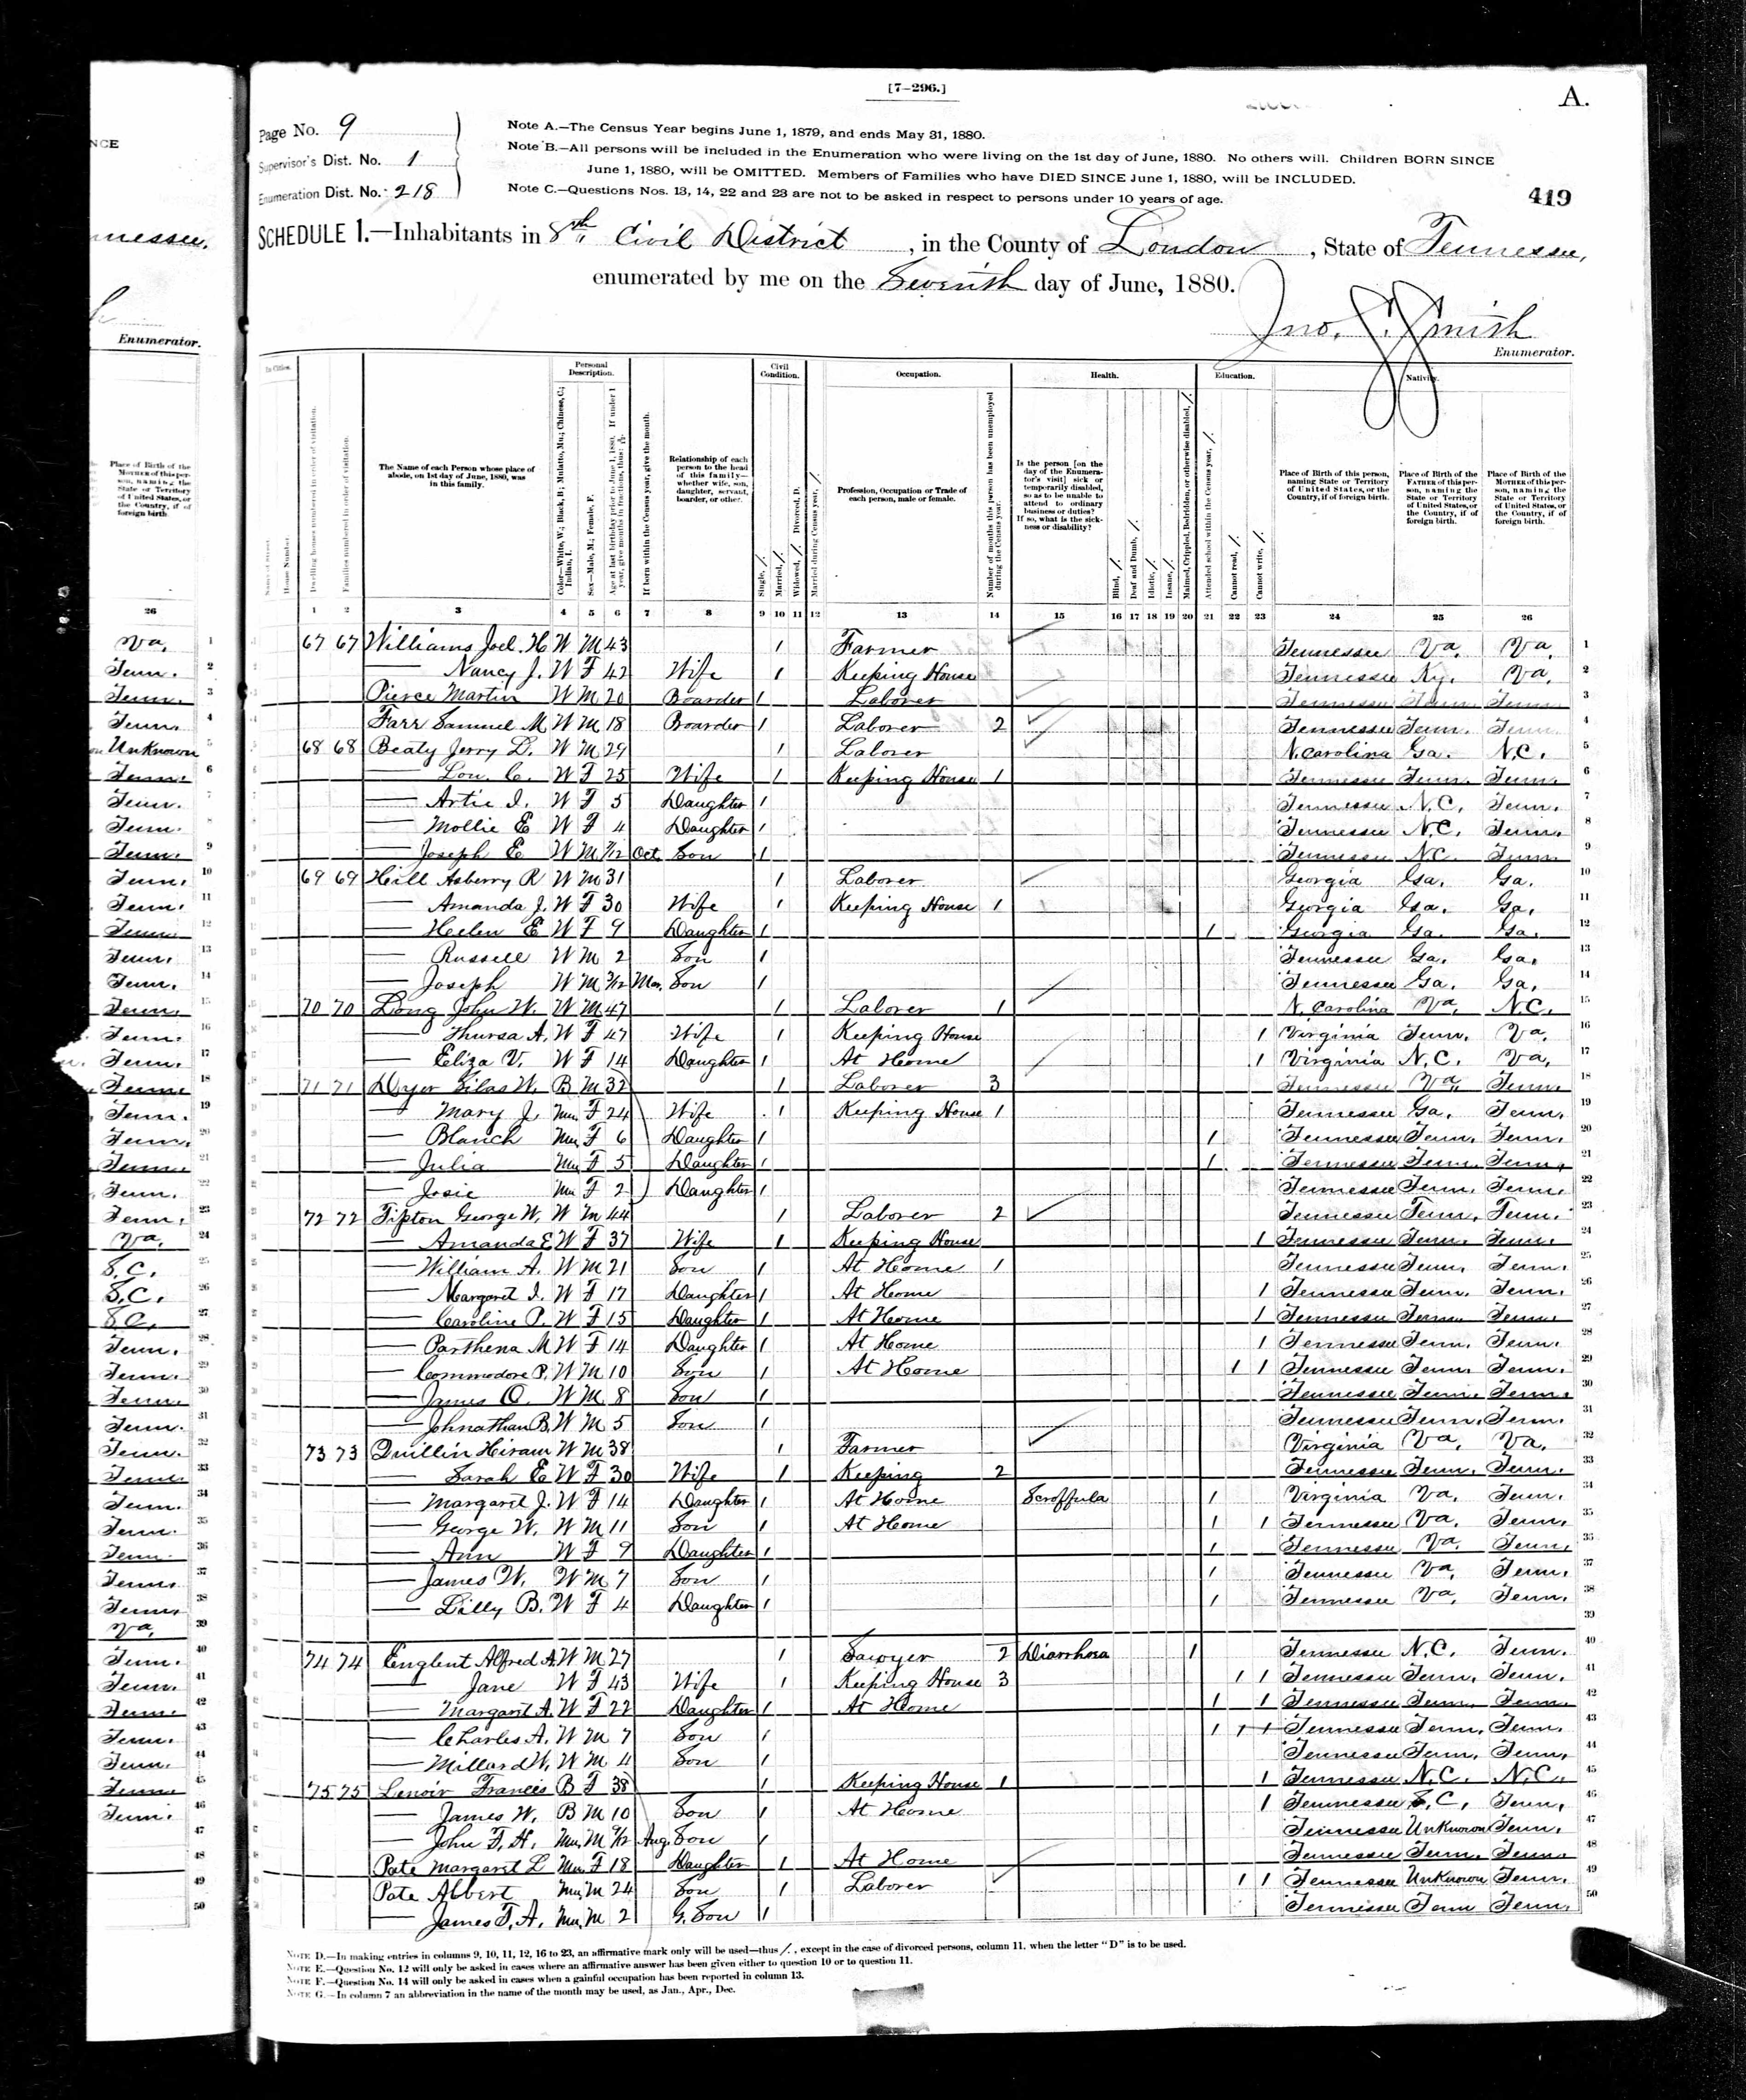 [7-296.]
A.
Page No. 9
Supervisor's Dist. No. 1
Enumeration Dist. No. 218
Note A.—The Census Year begins June 1, 1879, and ends May 31, 1880.
Note B.—All persons will be included in the Enumeration who were living on the 1st day of June, 1880. No others will. Children BORN SINCE
June 1, 1880, will be OMITTED. Members of Families who have DIED SINCE June 1, 1880, will be INCLUDED.
Note C.—Questions Nos. 13, 14, 22 and 23 are not to be asked in respect to persons under 10 years of age.
419
SCHEDULE 1.—Inhabitants in 8th Civil District, in the County of Loudon, State of Tennessee,
enumerated by me on the Seventh day of June, 1880.
Jno. Smith
Enumerator.
Personal Description. Civil Condition. Occupation. Health. Education. Nativity.
The Name of each Person whose place of abode, on 1st day of June, 1880, was in this family.
Relationship of each person to the head of this family—whether wife, son, daughter, servant, boarder, or other.
Profession, Occupation or Trade of each person, male or female.
Is the person [on the day of the Enumerator's visit] sick or temporarily disabled, so as to be unable to attend to ordinary business or duties? If so, what is the sickness or disability?
Place of Birth of this person, naming State or Territory of United States, or the Country, if of foreign birth.
Place of Birth of the FATHER of this person, naming the State or Territory of United States, or the Country, if of foreign birth.
Place of Birth of the MOTHER of this person, naming the State or Territory of United States, or the Country, if of foreign birth.
1 2 3 4 5 6 7 8 9 10 11 12 13 14 15 16 17 18 19 20 21 22 23 24 25 26
67 67 Williams Joel. H W M 43 1 Farmer Tennessee Va. Va. 1
— Nancy J. W F 42 Wife 1 Keeping House Tennessee Ky. Va. 2
Pierce Martin W M 20 Boarder 1 Laborer Tennessee Tenn. Tenn. 3
Farr Samuel M W M 18 Boarder 1 Laborer 2 Tennessee Tenn. Tenn. 4
68 68 Beaty Jerry D. W M 29 1 Laborer N. Carolina Ga. N.C. 5
— Lou. C. W F 25 Wife 1 Keeping House 1 Tennessee Tenn. Tenn. 6
— Artie I. W F 5 Daughter 1 Tennessee N.C. Tenn. 7
— Mollie E W F 4 Daughter 1 Tennessee N.C. Tenn. 8
— Joseph E W M 7/12 Oct Son 1 Tennessee N.C. Tenn 9
69 69 Hall Asberry R W M 31 1 Laborer Georgia Ga. Ga. 10
— Amanda J. W F 30 Wife 1 Keeping House 1 Georgia Ga. Ga. 11
— Helen E W F 9 Daughter 1 1 Georgia Ga. Ga. 12
— Russell W M 2 Son 1 Tennessee Ga. Ga. 13
— Joseph W M 3/12 Mar. Son 1 Tennessee Ga. Ga. 14
70 70 Long John W. W M 47 1 Laborer 1 N. Carolina Va. N.C. 15
— Thursa A. W F 47 Wife 1 Keeping House 1 Virginia Tenn. Va. 16
— Eliza V. W F 14 Daughter 1 At Home 1 Virginia N.C. Va. 17
71 71 Dyer Silas W. B M 32 1 Laborer 3 Tennessee Va. Tenn. 18
— Mary J. Mu. F 24 Wife 1 Keeping House 1 Tennessee Ga. Tenn. 19
— Blanch Mu. F 6 Daughter 1 1 Tennessee Tenn. Tenn. 20
— Julia Mu. F 5 Daughter 1 1 Tennessee Tenn. Tenn. 21
— Josie Mu F 2 Daughter 1 Tennessee Tenn. Tenn. 22
72 72 Tipton George W. W M 44 1 Laborer 2 Tennessee Tenn. Tenn. 23
— Amanda E W F 37 Wife 1 Keeping House 1 Tennessee Tenn. Tenn. 24
— William A. W M 21 Son 1 At Home 1 Tennessee Tenn. Tenn. 25
— Margaret I. W F 17 Daughter 1 At Home 1 Tennessee Tenn. Tenn. 26
— Caroline P. W F 15 Daughter 1 At Home 1 Tennessee Tenn. Tenn. 27
— Parthena M W F 14 Daughter 1 At Home 1 Tennessee Tenn. Tenn. 28
— Commodore P. W M 10 Son 1 At Home 1 1 Tennessee Tenn. Tenn. 29
— James O. W M 8 Son 1 Tennessee Tenn. Tenn. 30
— Johnathan B. W M 5 Son 1 Tennessee Tenn. Tenn. 31
73 73 Quillin Hiram W M 38 1 Farmer Virginia Va. Va. 32
— Sarah E W F 30 Wife 1 Keeping 2 Tennessee Tenn. Tenn. 33
— Margaret J. W F 14 Daughter 1 At Home Scroffula 1 Virginia Va. Tenn. 34
— George W. W M 11 Son 1 At Home 1 1 Tennessee Va. Tenn. 35
— Ann W F 9 Daughter 1 1 Tennessee Va. Tenn. 36
— James W. W M 7 Son 1 1 Tennessee Va. Tenn. 37
— Lilly B. W F 4 Daughter 1 1 Tennessee Va. Tenn. 38
39
74 74 Englent Alfred A. W M 27 1 Sawyer 2 Diarrhoea 1 Tennessee N.C. Tenn. 40
— Jane W F 43 Wife 1 Keeping House 3 1 1 Tennessee Tenn. Tenn. 41
— Margaret A. W F 22 Daughter 1 At Home 1 1 Tennessee Tenn. Tenn. 42
— Charles A. W M 7 Son 1 1 1 1 Tennessee Tenn. Tenn. 43
— Millard W. W M 4 Son 1 Tennessee Tenn. Tenn. 44
75 75 Lenoir Francis B F 38 1 Keeping House 1 1 Tennessee N.C. N.C. 45
— James W. B M 10 Son 1 At Home 1 Tennessee S.C. Tenn. 46
— John F. H. Mu. M 9/12 Aug. Son 1 Tennessee Unknown Tenn. 47
Pate Margaret L Mu. F 18 Daughter 1 At Home Tennessee Tenn. Tenn. 48
Pate Albert Mu. M 24 Son 1 Laborer 1 1 Tennessee Unknown Tenn. 49
— James T. A. Mu. M 2 G. Son 1 Tennessee Tenn Tenn. 50
NOTE D.—In making entries in columns 9, 10, 11, 12, 16 to 23, an affirmative mark only will be used—thus /, except in the case of divorced persons, column 11, when the letter "D" is to be used.
NOTE E.—Question No. 12 will only be asked in cases where an affirmative answer has been given either to question 10 or to question 11.
NOTE F.—Question No. 14 will only be asked in cases when a gainful occupation has been reported in column 13.
NOTE G.—In column 7 an abbreviation in the name of the month may be used, as Jan., Apr., Dec.